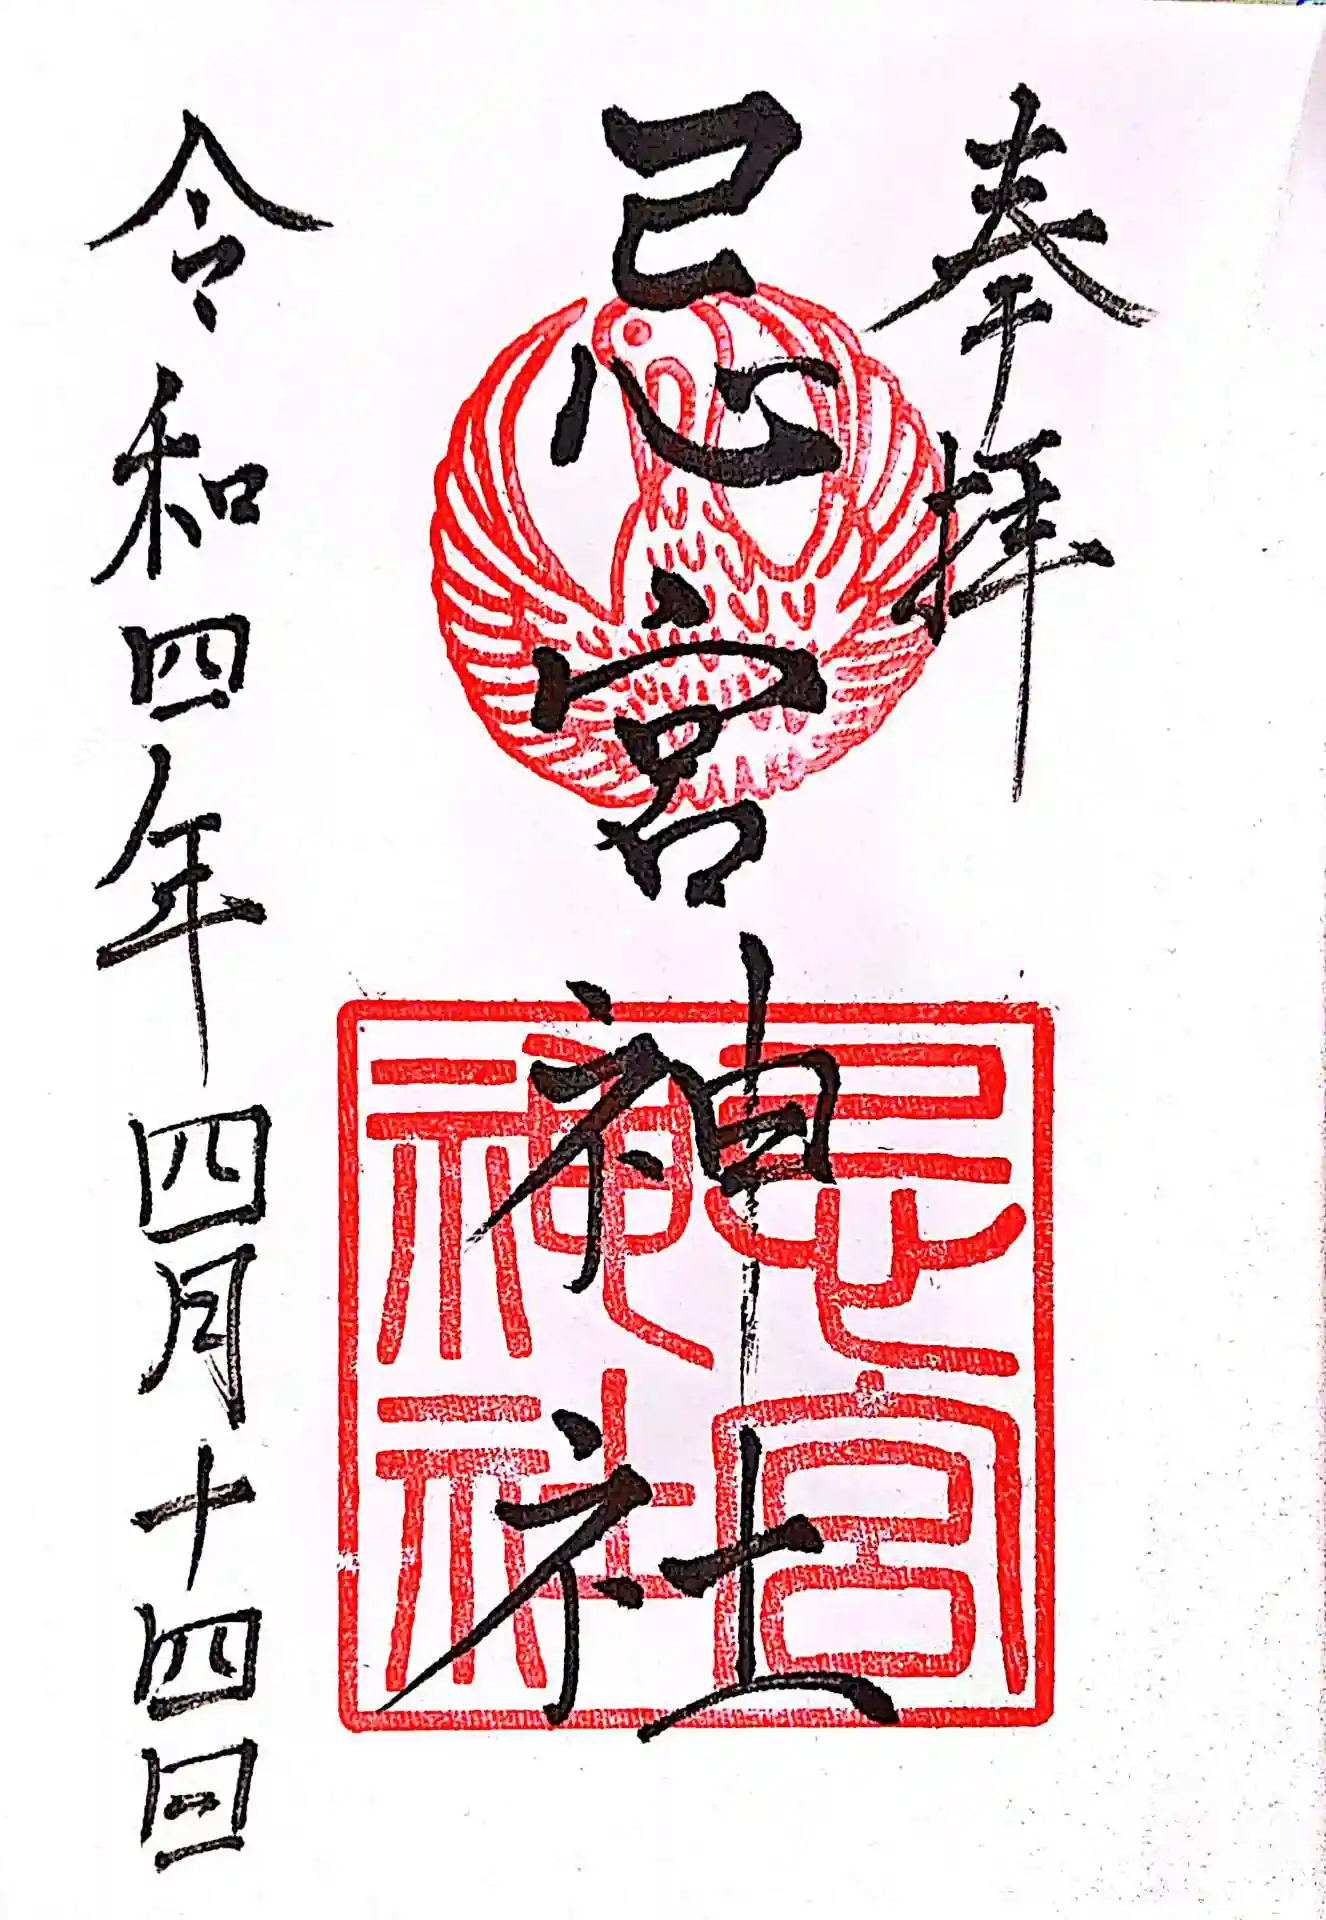 奉拝
忌宮神社
忌宮神社
令和四年四月十四日